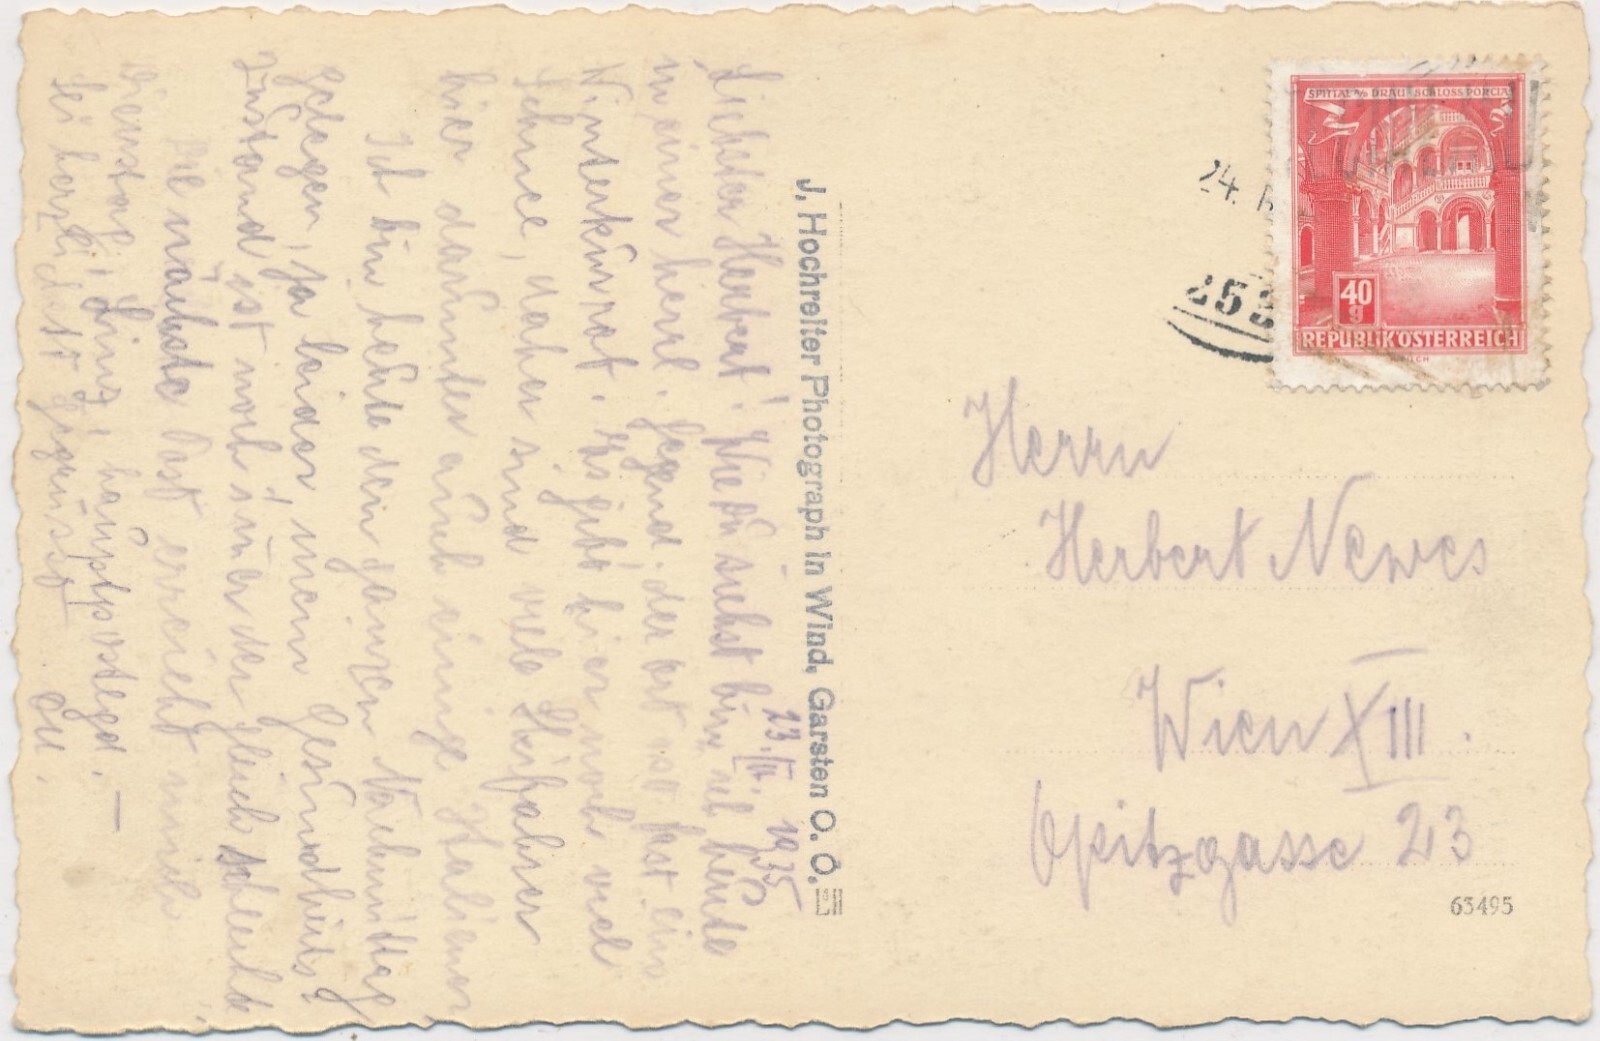 23. IV. 1935
Liebster Herbert! Wie du siehst bin ich heute
in einer herrl. Gegend. der ort ist fast ein
Winterkurort. Es gibt hier noch viel
Schnee, daher sind viele Skifahrer
hier darunter auch einige Italiener.
Ich bin heute den ganzen Nachmittag
gelegen, ja leider, mein Gesundheits=
zustand ist noch imer der gleich schlechte
Die nächste Post erreicht mich
Dienstag, Linz, hauptpostlgd. —
Sei herzlichst gegrüsst
J. Hochreiter Photograph in Wind, Garsten O. Ö.
SPITTAL a/o DRAU · SCHLOSS PORCIA
40
g
REPUBLIK ÖSTERREICH
24.
25
Herrn
Herbert Newes
Wien XIII.
Opitzgasse 23
63495